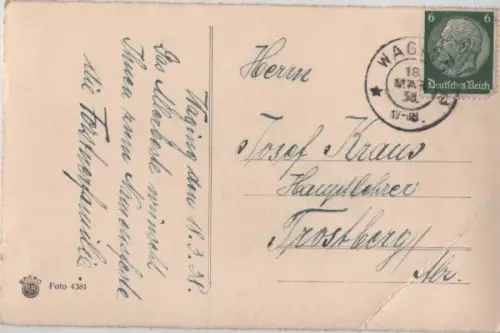 Waging den 18.3.38.
Das Allerbeste wünscht
Ihnen zum Namensfeste
die Forstnerfamilie.
Foto 4381
Herrn
Josef Kraus
Hauptlehrer
Trostberg
WAG
18
MAR
38.
17-18.
6 6
Deutsches Reich